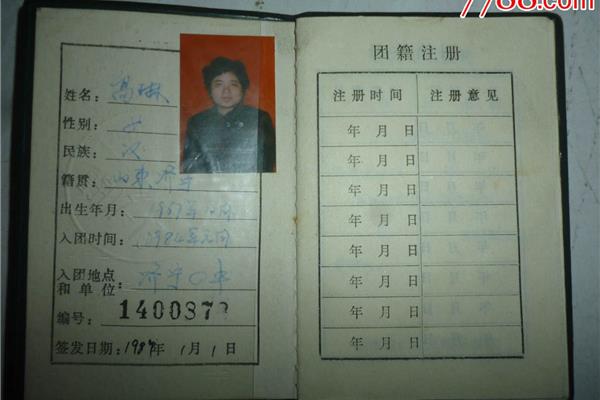 7788.com
姓名：高琳
性别：女
民族：汉
籍贯：山东济宁
出生年月：
入团时间：
入团地点
和单位：济宁
编号：1400373
签发日期：1987年1月1日
团籍注册
注册时间 注册意见
年 月 日
年 月 日
年 月 日
年 月 日
年 月 日
年 月 日
年 月 日
年 月 日